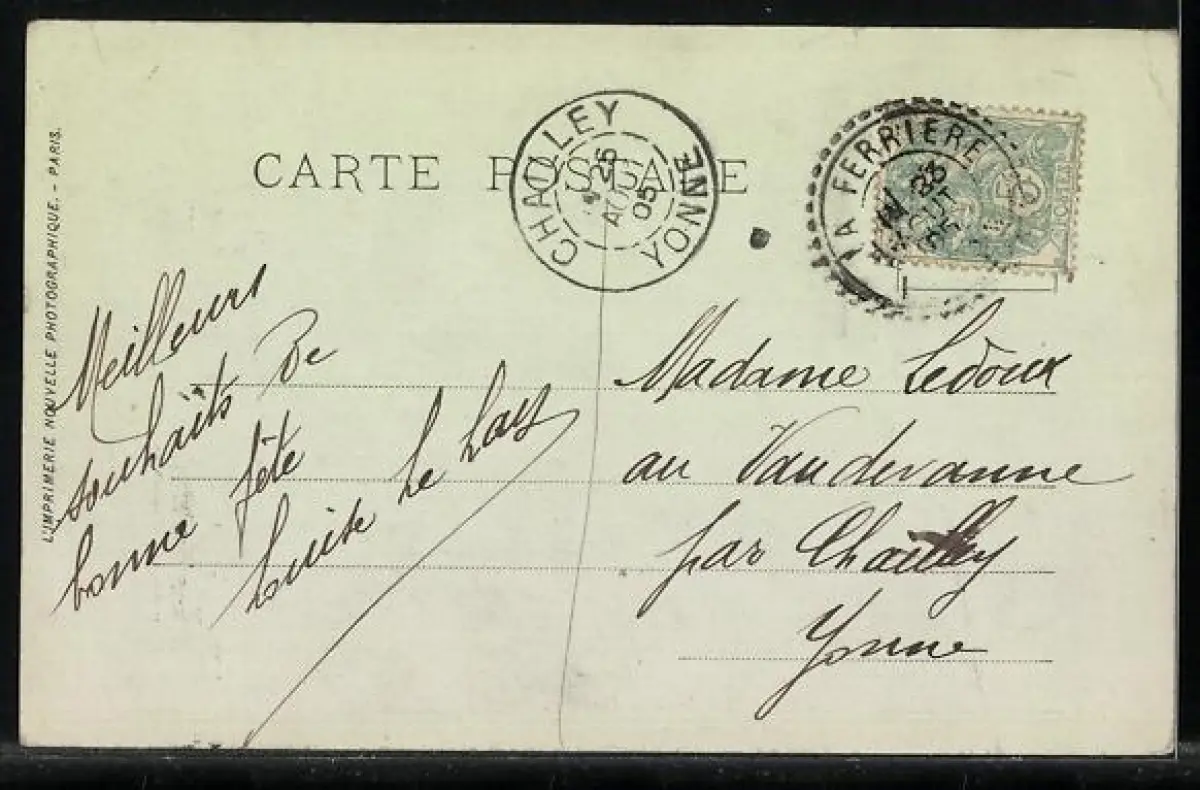 L'IMPRIMERIE NOUVELLE PHOTOGRAPHIQUE. - PARIS.
CARTE POSTALE
CHAILLEY
25
AOUT
05
YONNE
LA FERRIERE
5
Meilleurs
souhaits de
bonne fête
Louise Le
Madame Ledoux
au Vaudevanne
par Chailley
Yonne